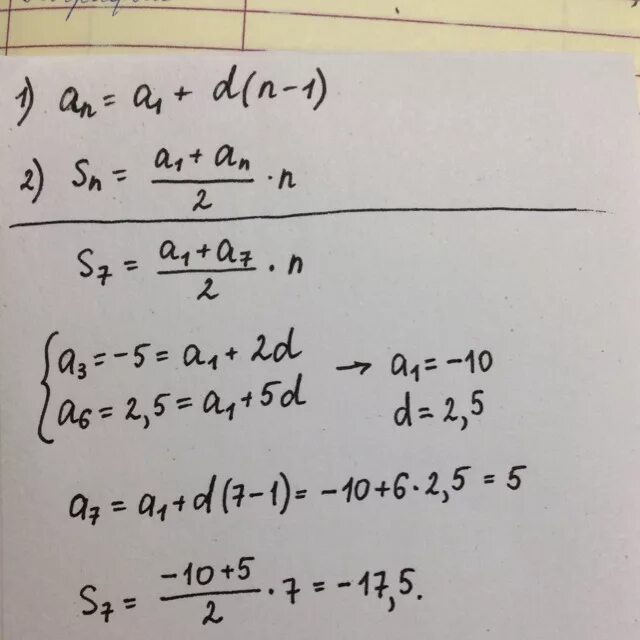 1) aₙ = a₁ + d(n-1)
2) Sₙ = (a₁ + aₙ)/2 · n
S₇ = (a₁ + a₇)/2 · n
{ a₃ = -5 = a₁ + 2d → a₁ = -10
a₆ = 2,5 = a₁ + 5d d = 2,5
a₇ = a₁ + d(7-1) = -10 + 6·2,5 = 5
S₇ = (-10+5)/2 · 7 = -17,5.